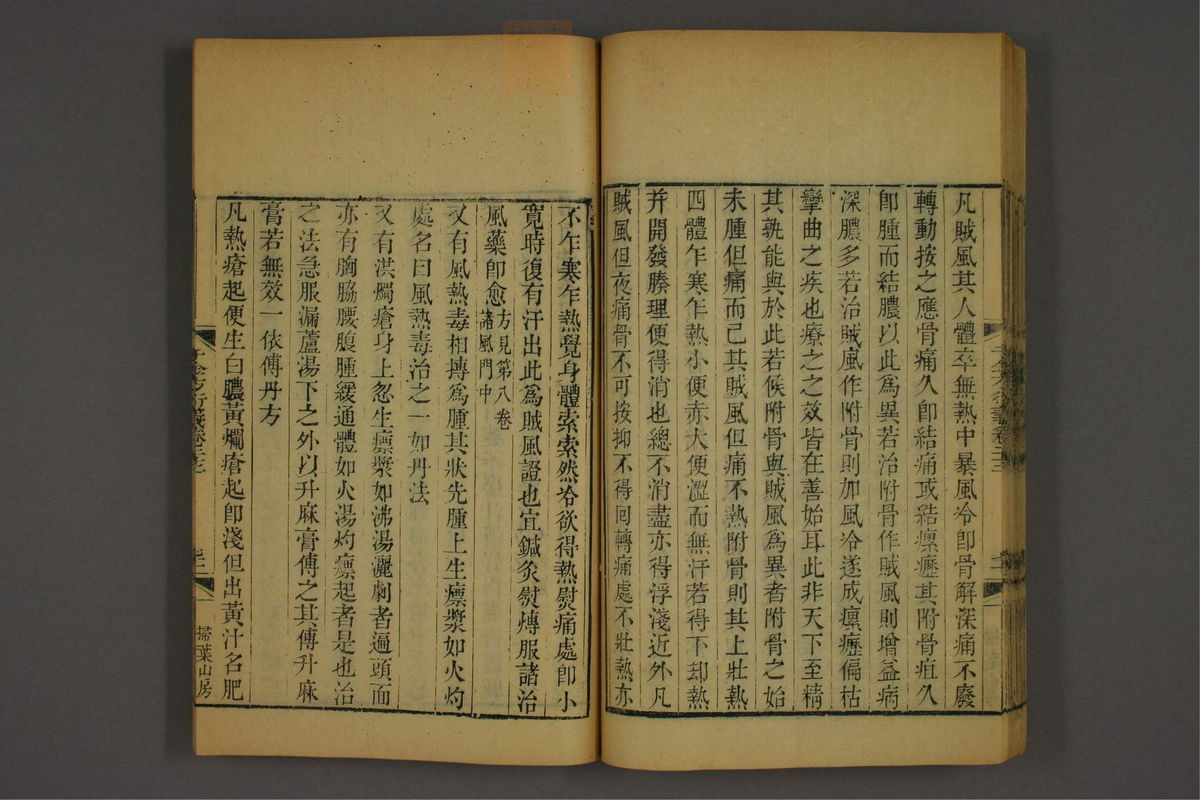 凡賊風其人體卒無熱中暴風冷即骨解深痛不廢
轉動按之應骨痛久即結痛或結瘰癧其附骨疽久
即腫而結膿以此為異若治附骨作賊風則增益病
深膿多若治賊風作附骨則加風冷遂成瘰癧偏枯
攣曲之疾也療之之效皆在善始耳此非天下至精
其孰能與於此若候附骨與賊風為異者附骨之始
未腫但痛而已其賊風但痛不熱附骨則其上壯熱
四體乍寒乍熱小便赤大便澀而無汗若得下却熱
并開發腠理便得消也總不消盡亦得浮淺近外凡
賊風但夜痛骨不可按抑不得回轉痛處不壯熱亦
不乍寒乍熱覺身體索索然冷欲得熱熨痛處即小
寬時復有汗出此為賊風證也宜鍼灸熨煿服諸治
風藥即愈方見第八卷
諸風門中
又有風熱毒相摶為腫其狀先腫上生瘭漿如火灼
處名曰風熱毒治之一如丹法
又有洪燭瘡身上忽生瘭漿如沸湯灑劇者遍頭面
亦有胸脇腰腹腫緩通體如火湯灼瘭起者是也治
之法急服漏蘆湯下之外以升麻膏傅之其傅升麻
膏若無效一依傅丹方
凡熱瘡起便生白膿黃爛瘡起即淺但出黃汁名肥
掃葉山房